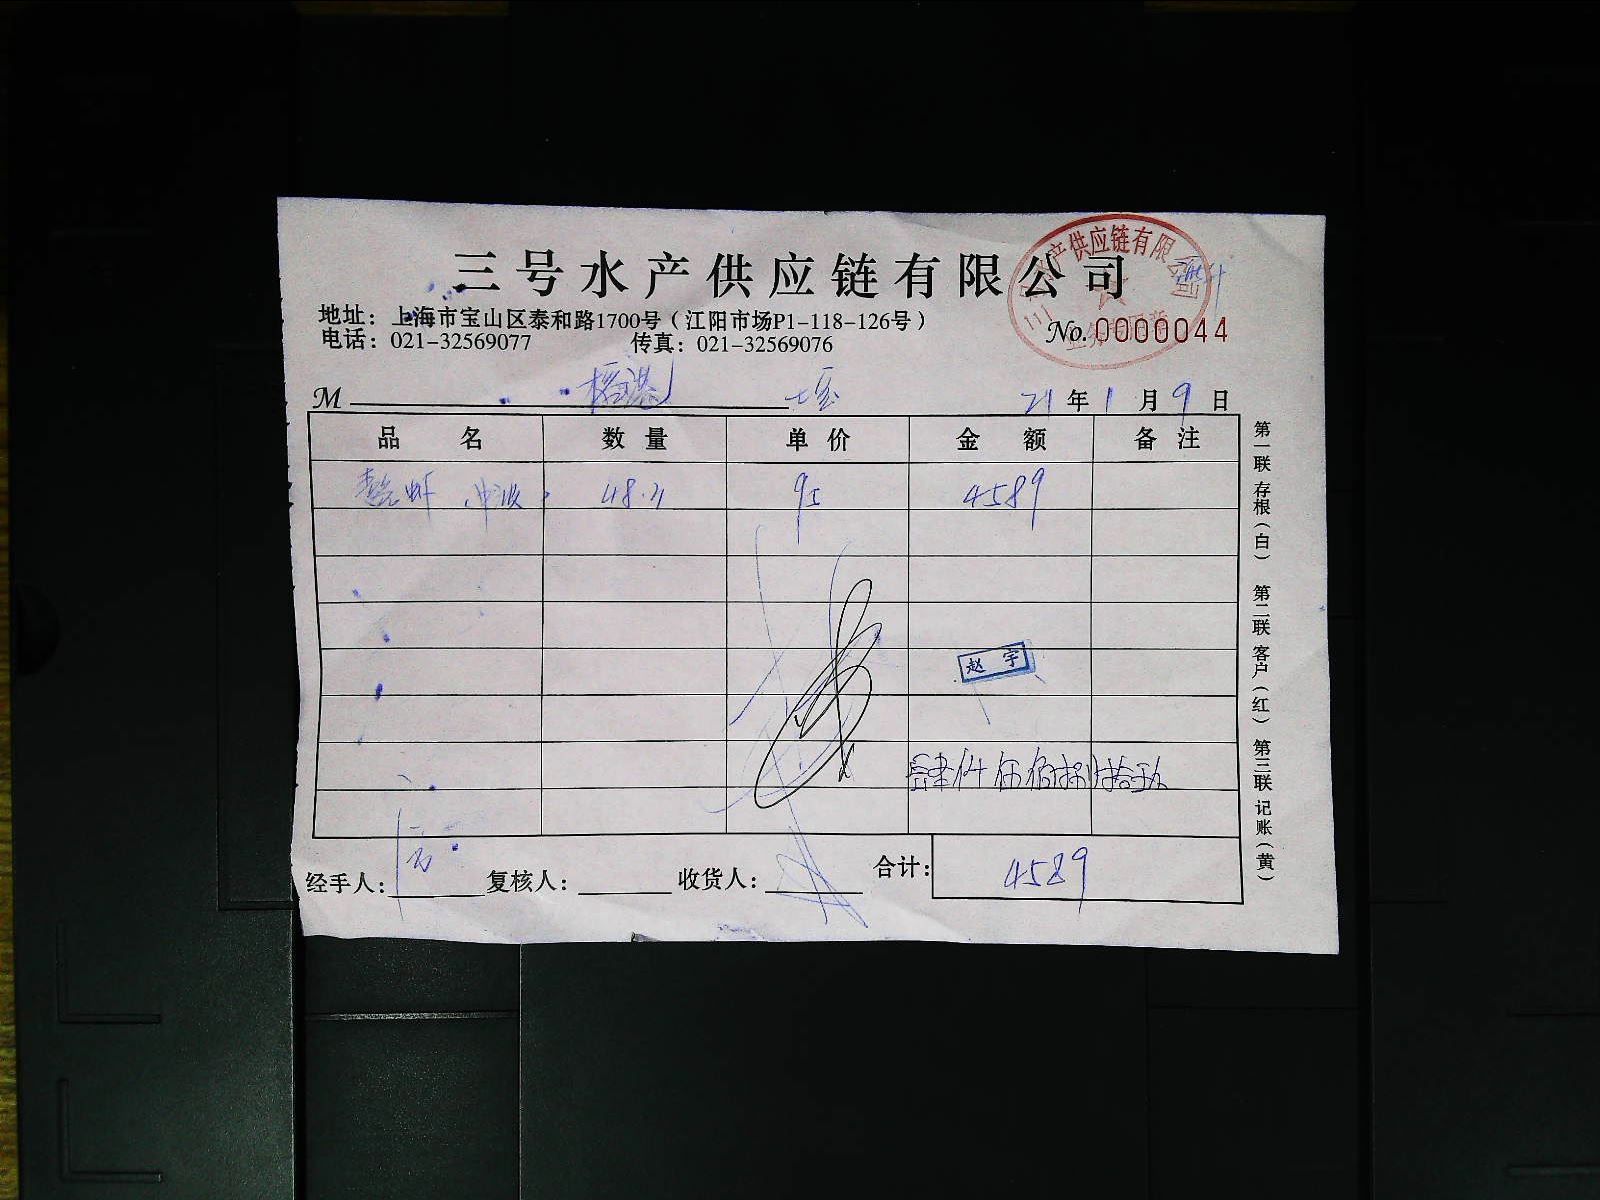 三号水产供应链有限公司
地址：上海市宝山区泰和路1700号（江阳市场P1-118-126号）
电话：021-32569077 传真：021-32569076
水产供应链有限公司
No.0000044
M 七宝 21年1月9日
品名 数量 单价 金额 备注
虾 48.3 95 4589
赵宇
肆仟伍佰捌拾玖
经手人： 复核人： 收货人： 合计：4589
第一联 存根（白） 第二联 客户（红） 第三联 记账（黄）